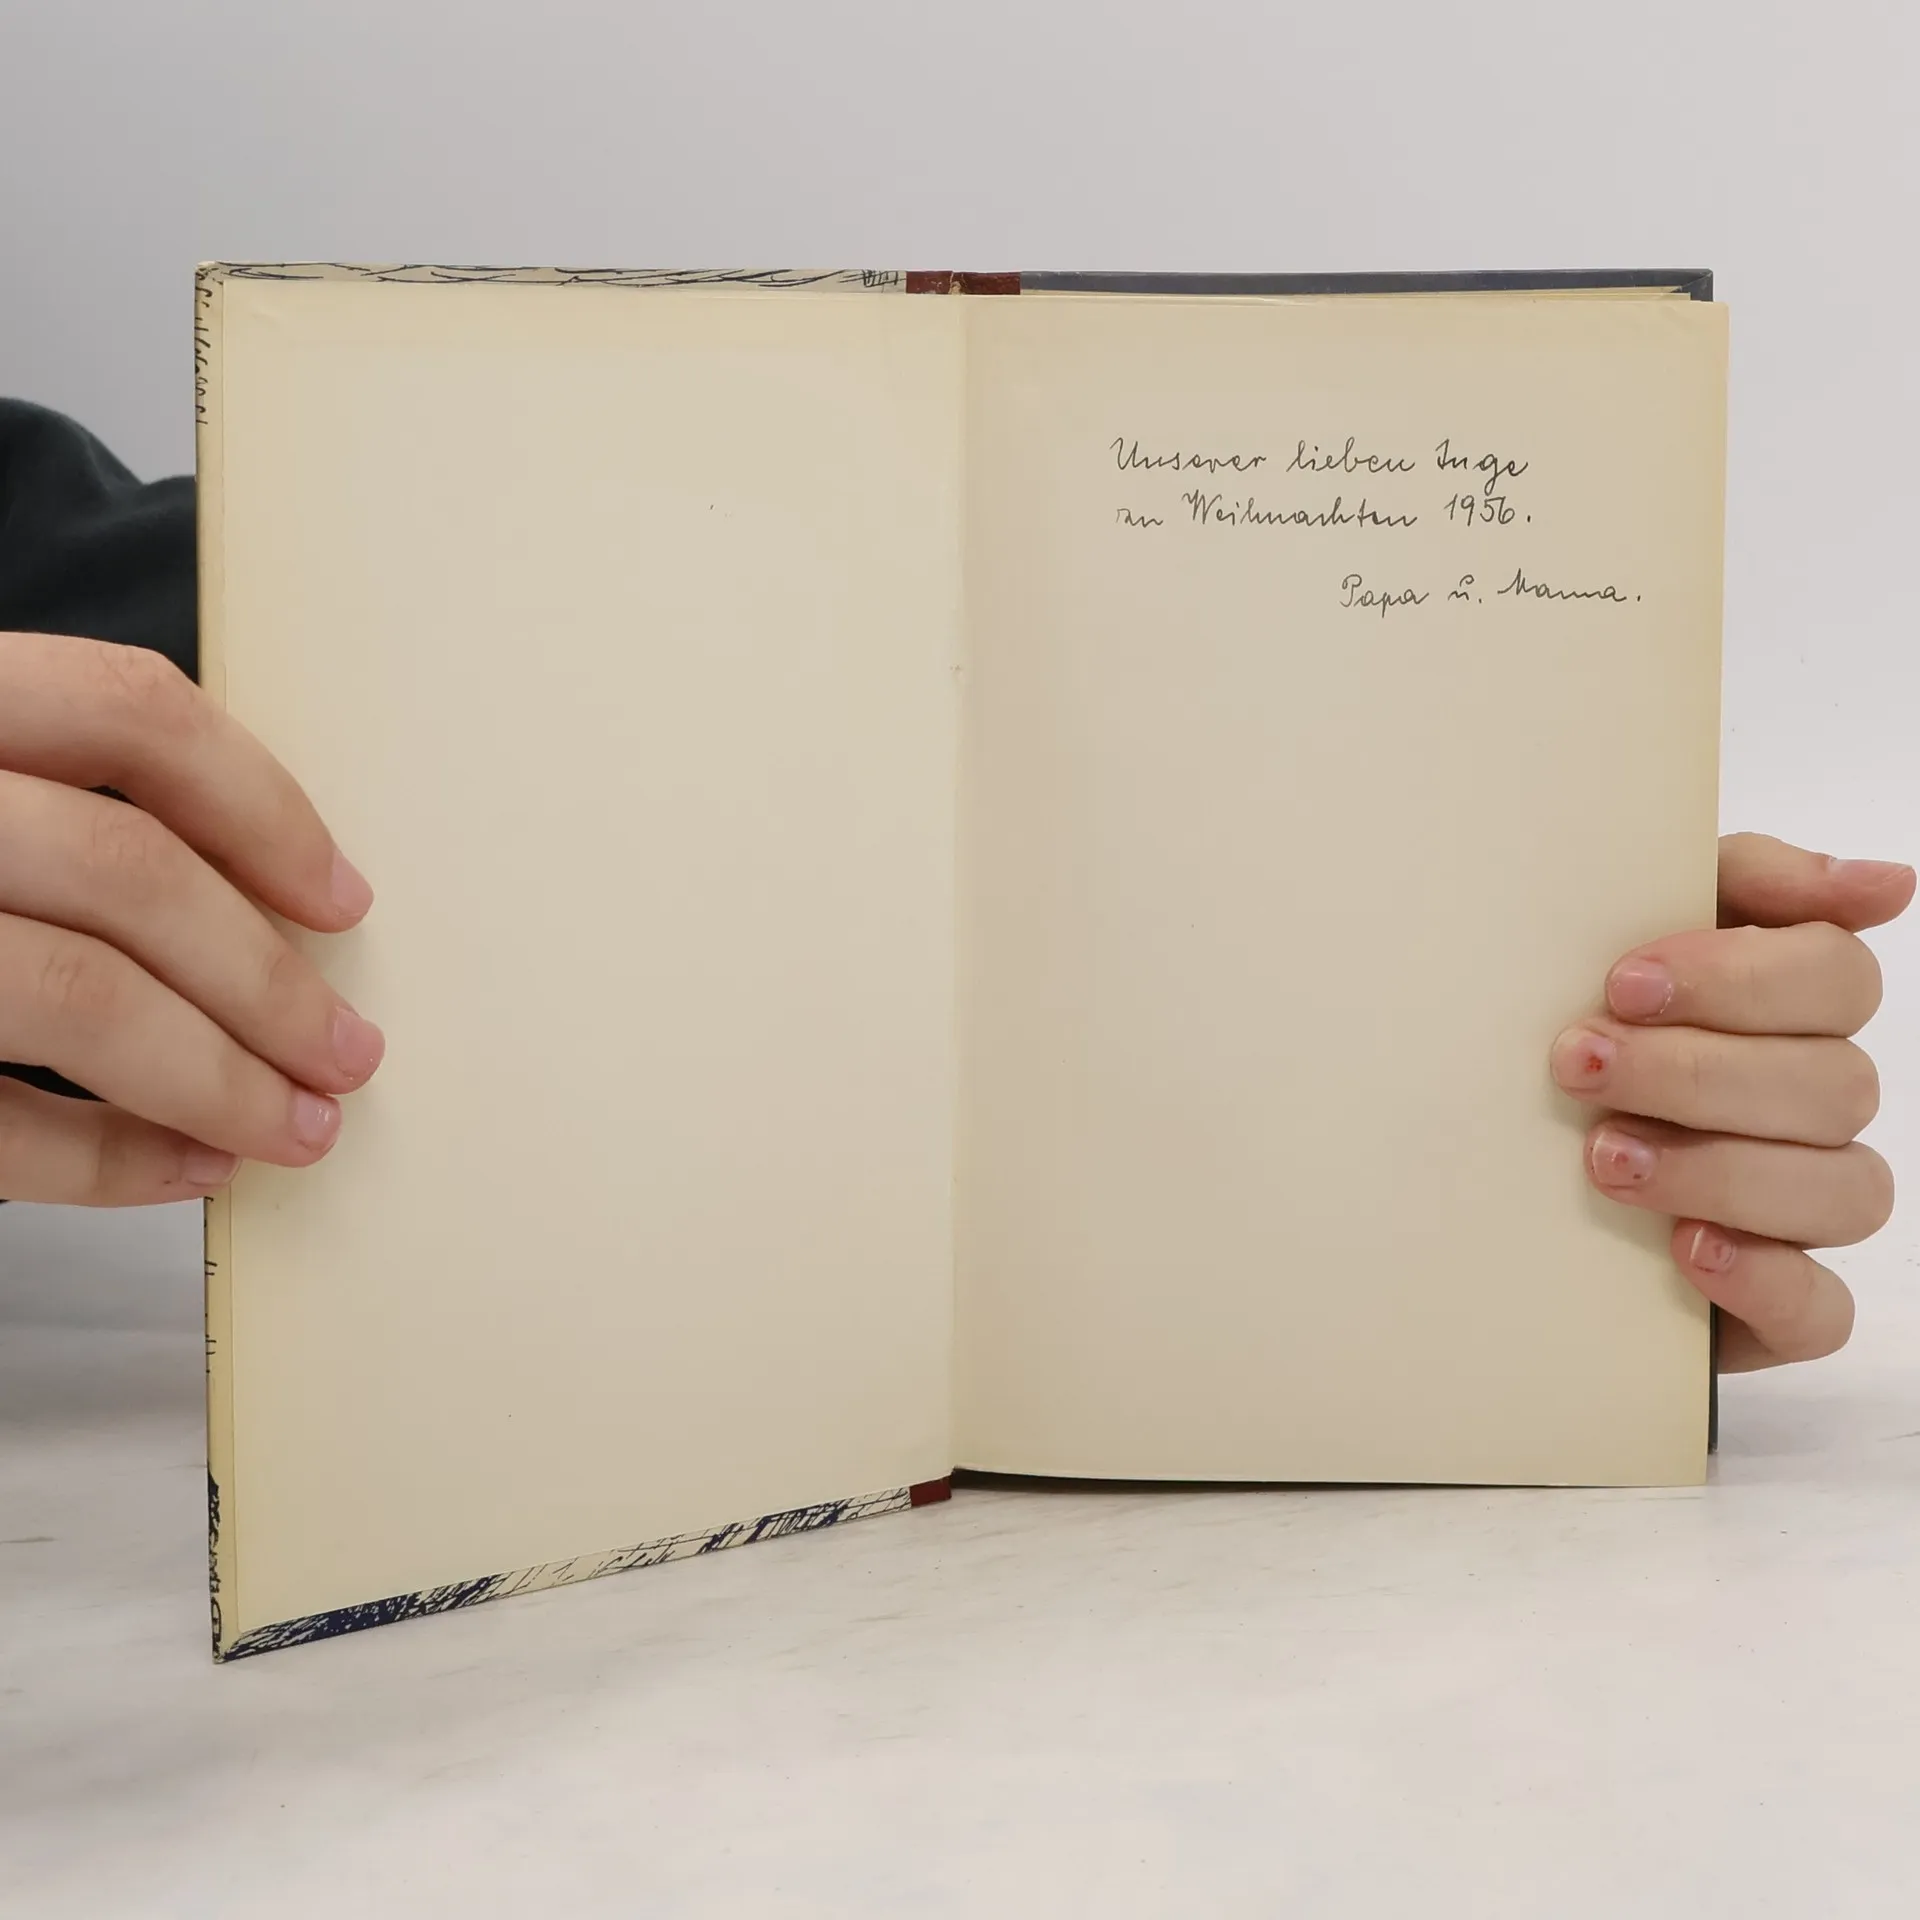 Unserer lieben Inge
zu Weihnachten 1956.
Papa u. Mama.